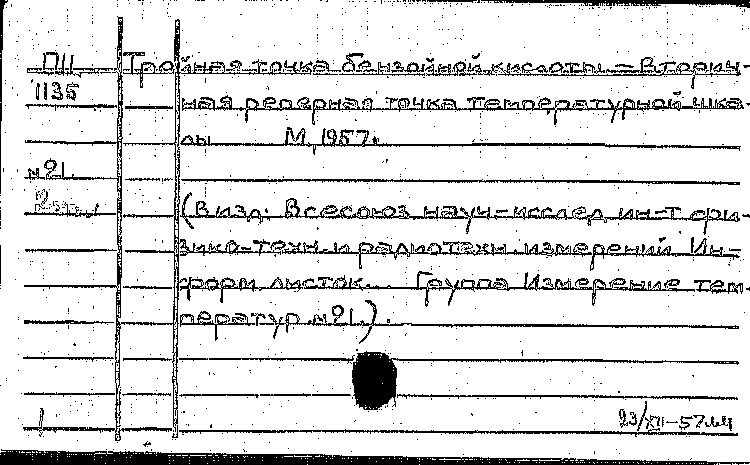 П11 Тройная точка бензойной кислоты. — Вторич-
1135 ная реперная точка температурной шка-
лы М., 1957.
№21.
(В изд: Всесоюз науч-исслед ин-т фи-
зико-техн и радиотехн. измерений. Ин-
форм листок... Группа Измерение тем-
ператур №21.).
23/XII-57